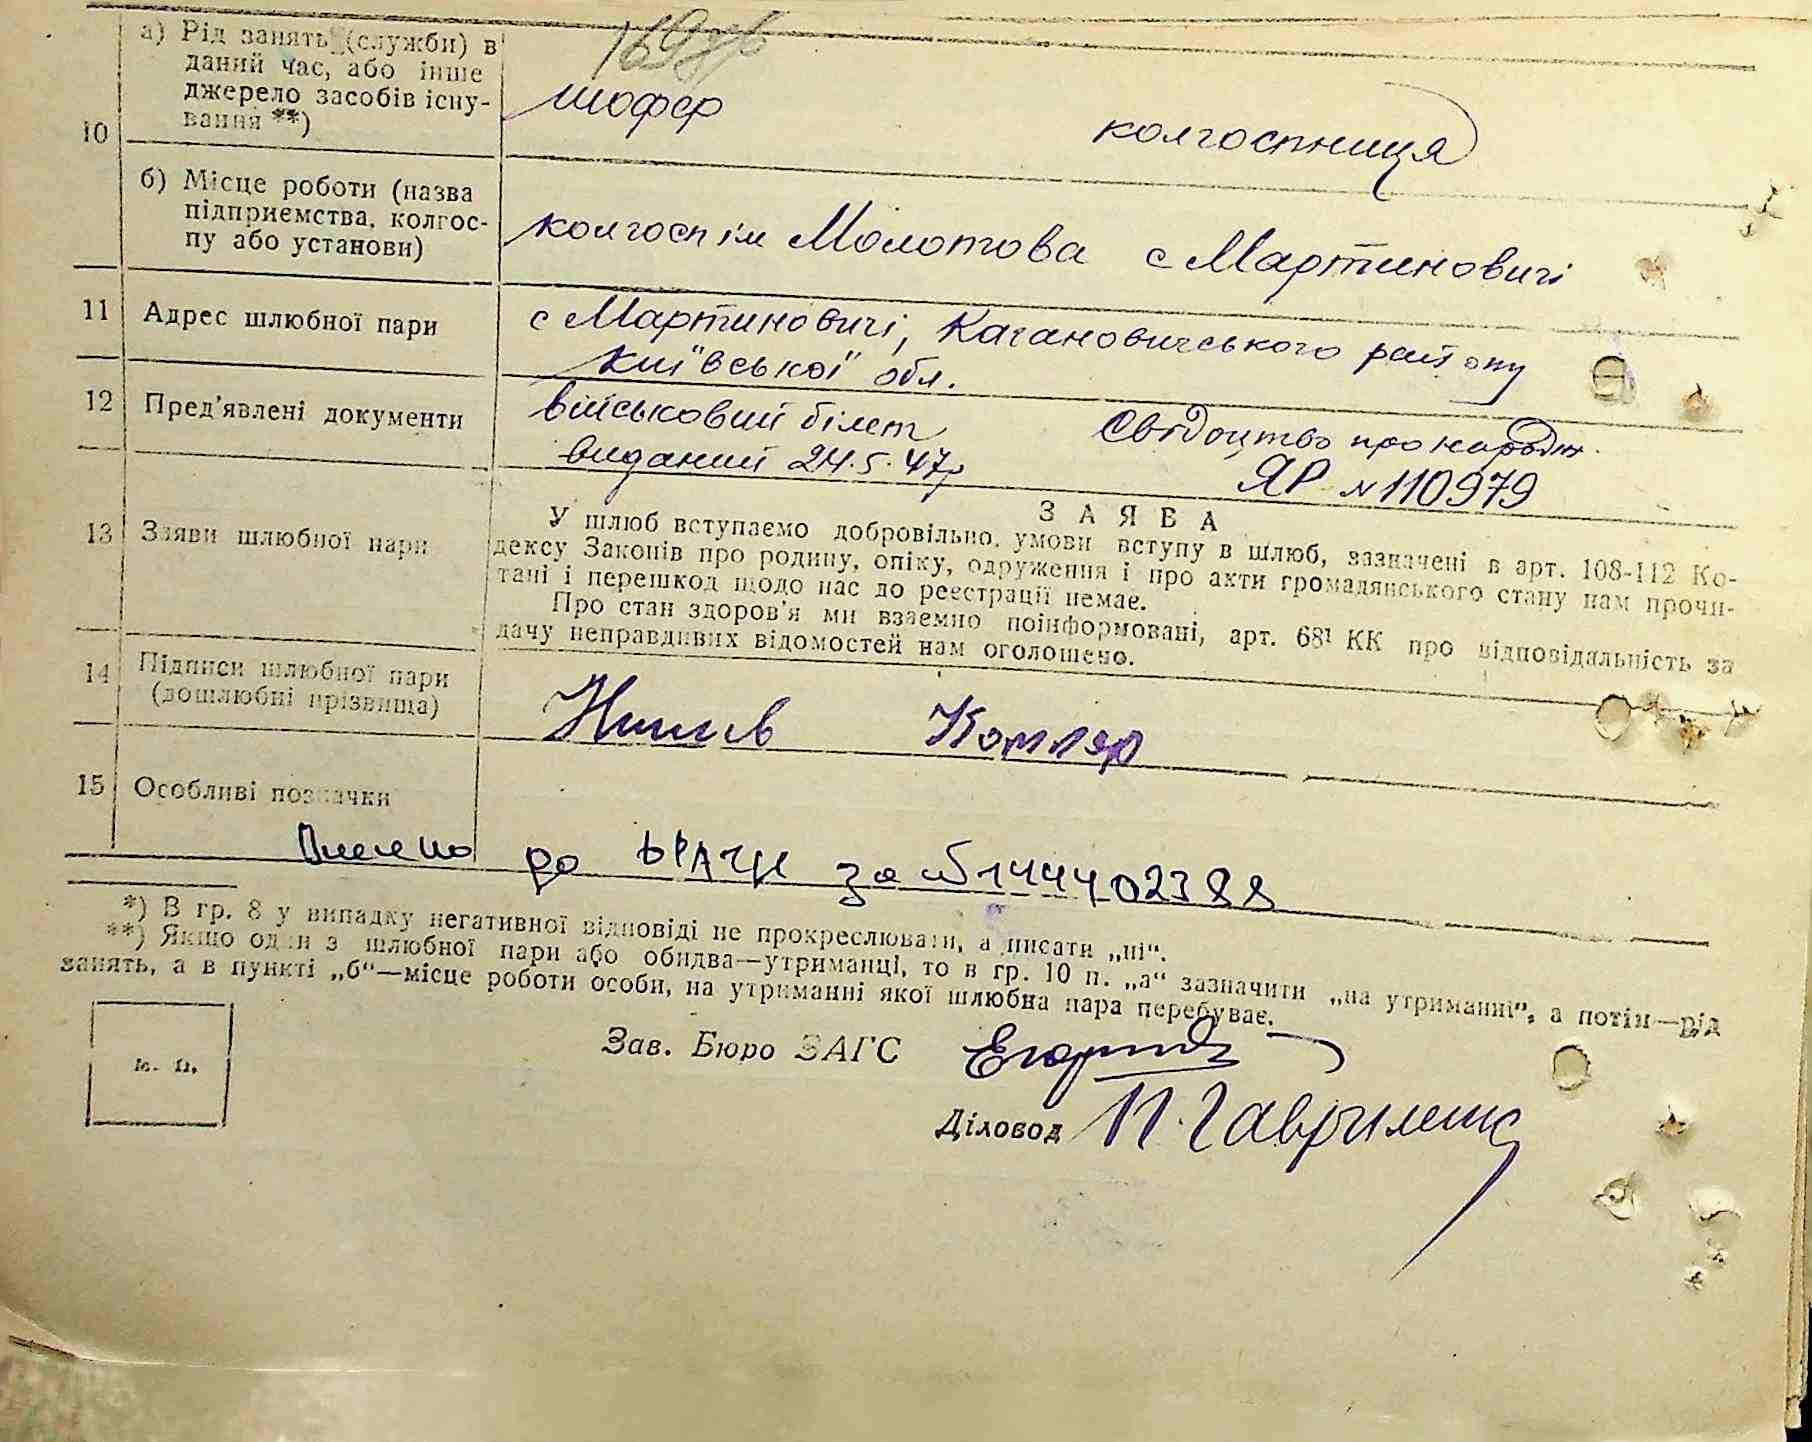 169зв
а) Рід занять (служби) в
даний час, або інше
джерело засобів існу-
вання **)
10
шофер
колгоспниця
б) Місце роботи (назва
підприємства, колгос-
пу або установи)
колгосп ім Молотова с Мартиновичі
11 Адрес шлюбної пари
с Мартиновичі, Кагановичського району
Київської обл.
12 Пред'явлені документи
військовий білет
виданий 24.5.47р
Свідоцтво про народж.
ЯР №110979
13 Заяви шлюбної пари
ЗАЯВА
У шлюб вступаємо добровільно, умови вступу в шлюб, зазначені в арт. 108-112 Ко-
дексу Законів про родину, опіку, одруження і про акти громадянського стану нам прочи-
тані і перешкод щодо нас до реєстрації немає.
Про стан здоров'я ми взаємно поінформовані, арт. 68¹ КК про відповідальність за
дачу неправдивих відомостей нам оголошено.
14 Підписи шлюбної пари
(дошлюбні прізвища)
Котляр
15 Особливі позначки
Внесено до ДРАЦС за №
*) В гр. 8 у випадку негативної відповіді не прокреслювати, а писати „ні“.
**) Якщо один з шлюбної пари або обидва—утриманці, то в гр. 10 п. „а“ зазначити „на утриманні“, а потім—рід
занять, а в пункті „б“—місце роботи особи, на утриманні якої шлюбна пара перебуває.
м. п.
Зав. Бюро ЗАГС
Діловод П. Гавриленко